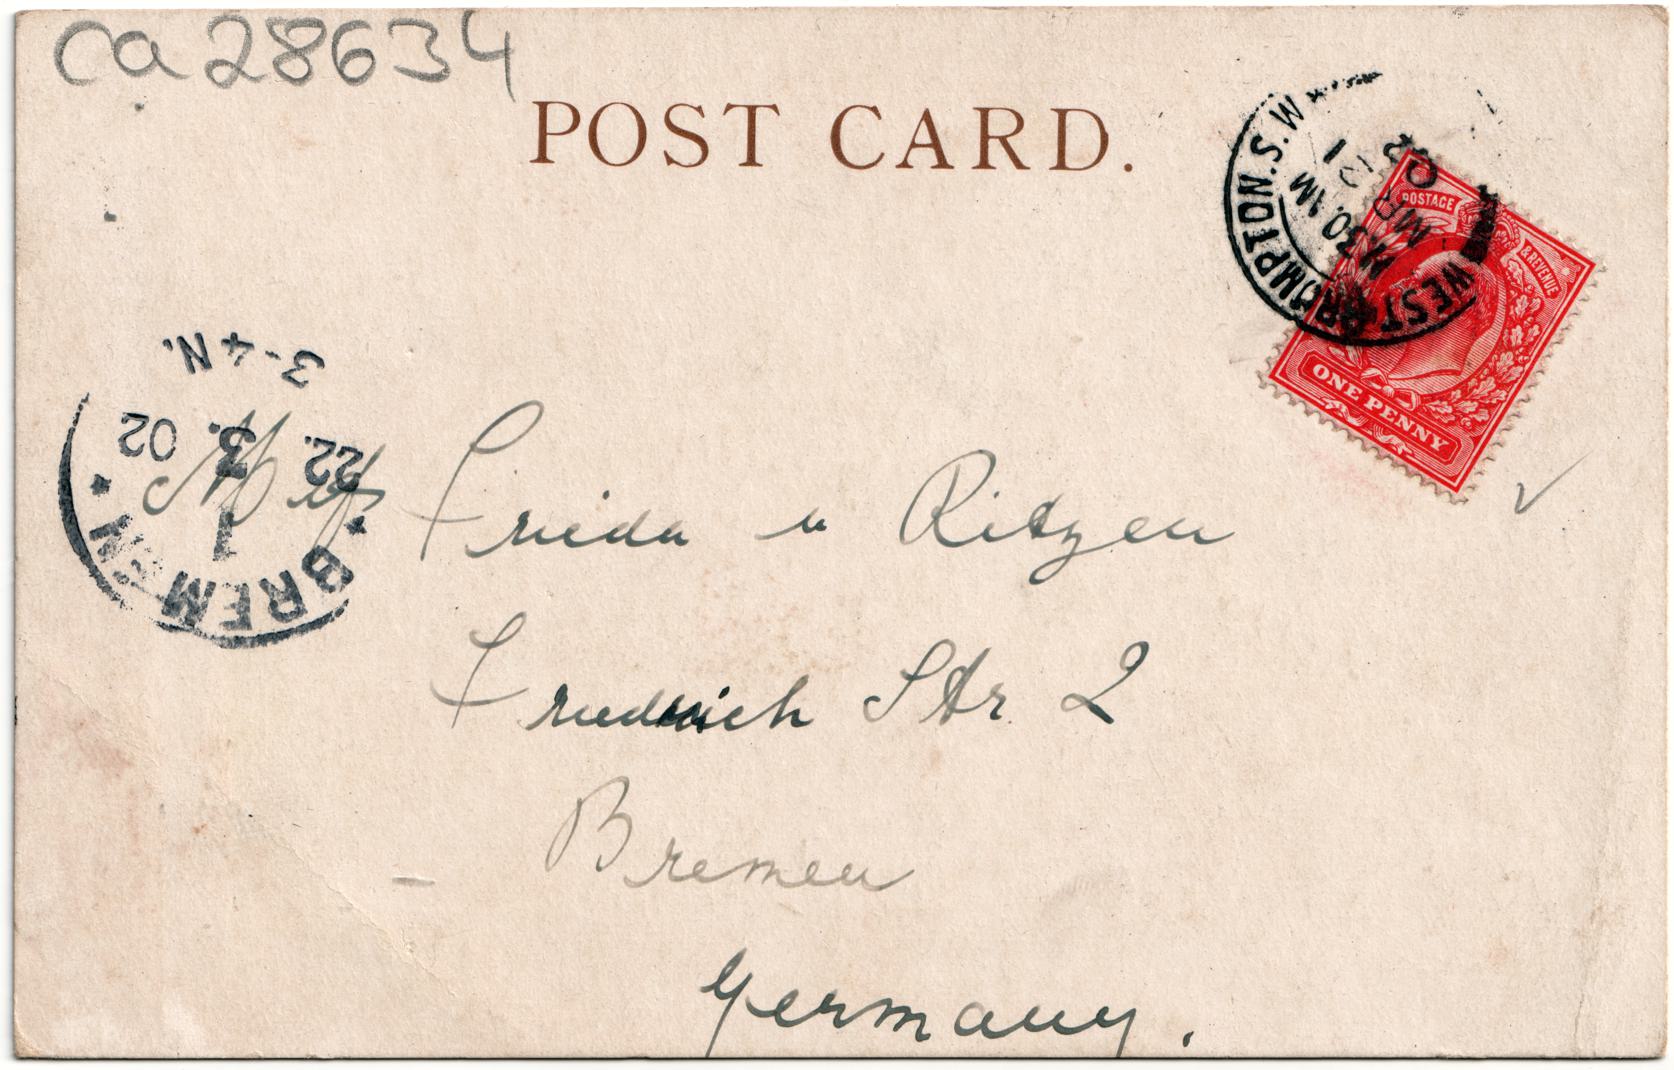 ca 28634
POST CARD.
WEST BROMPTON.S.W
11.30.AM
MR 21
02
POSTAGE & REVENUE
ONE PENNY
3-4 N.
22. 3. 02
1
* BREMEN *
Frieda u Ritzen
Friedrich Str 2
Bremen
Germany.